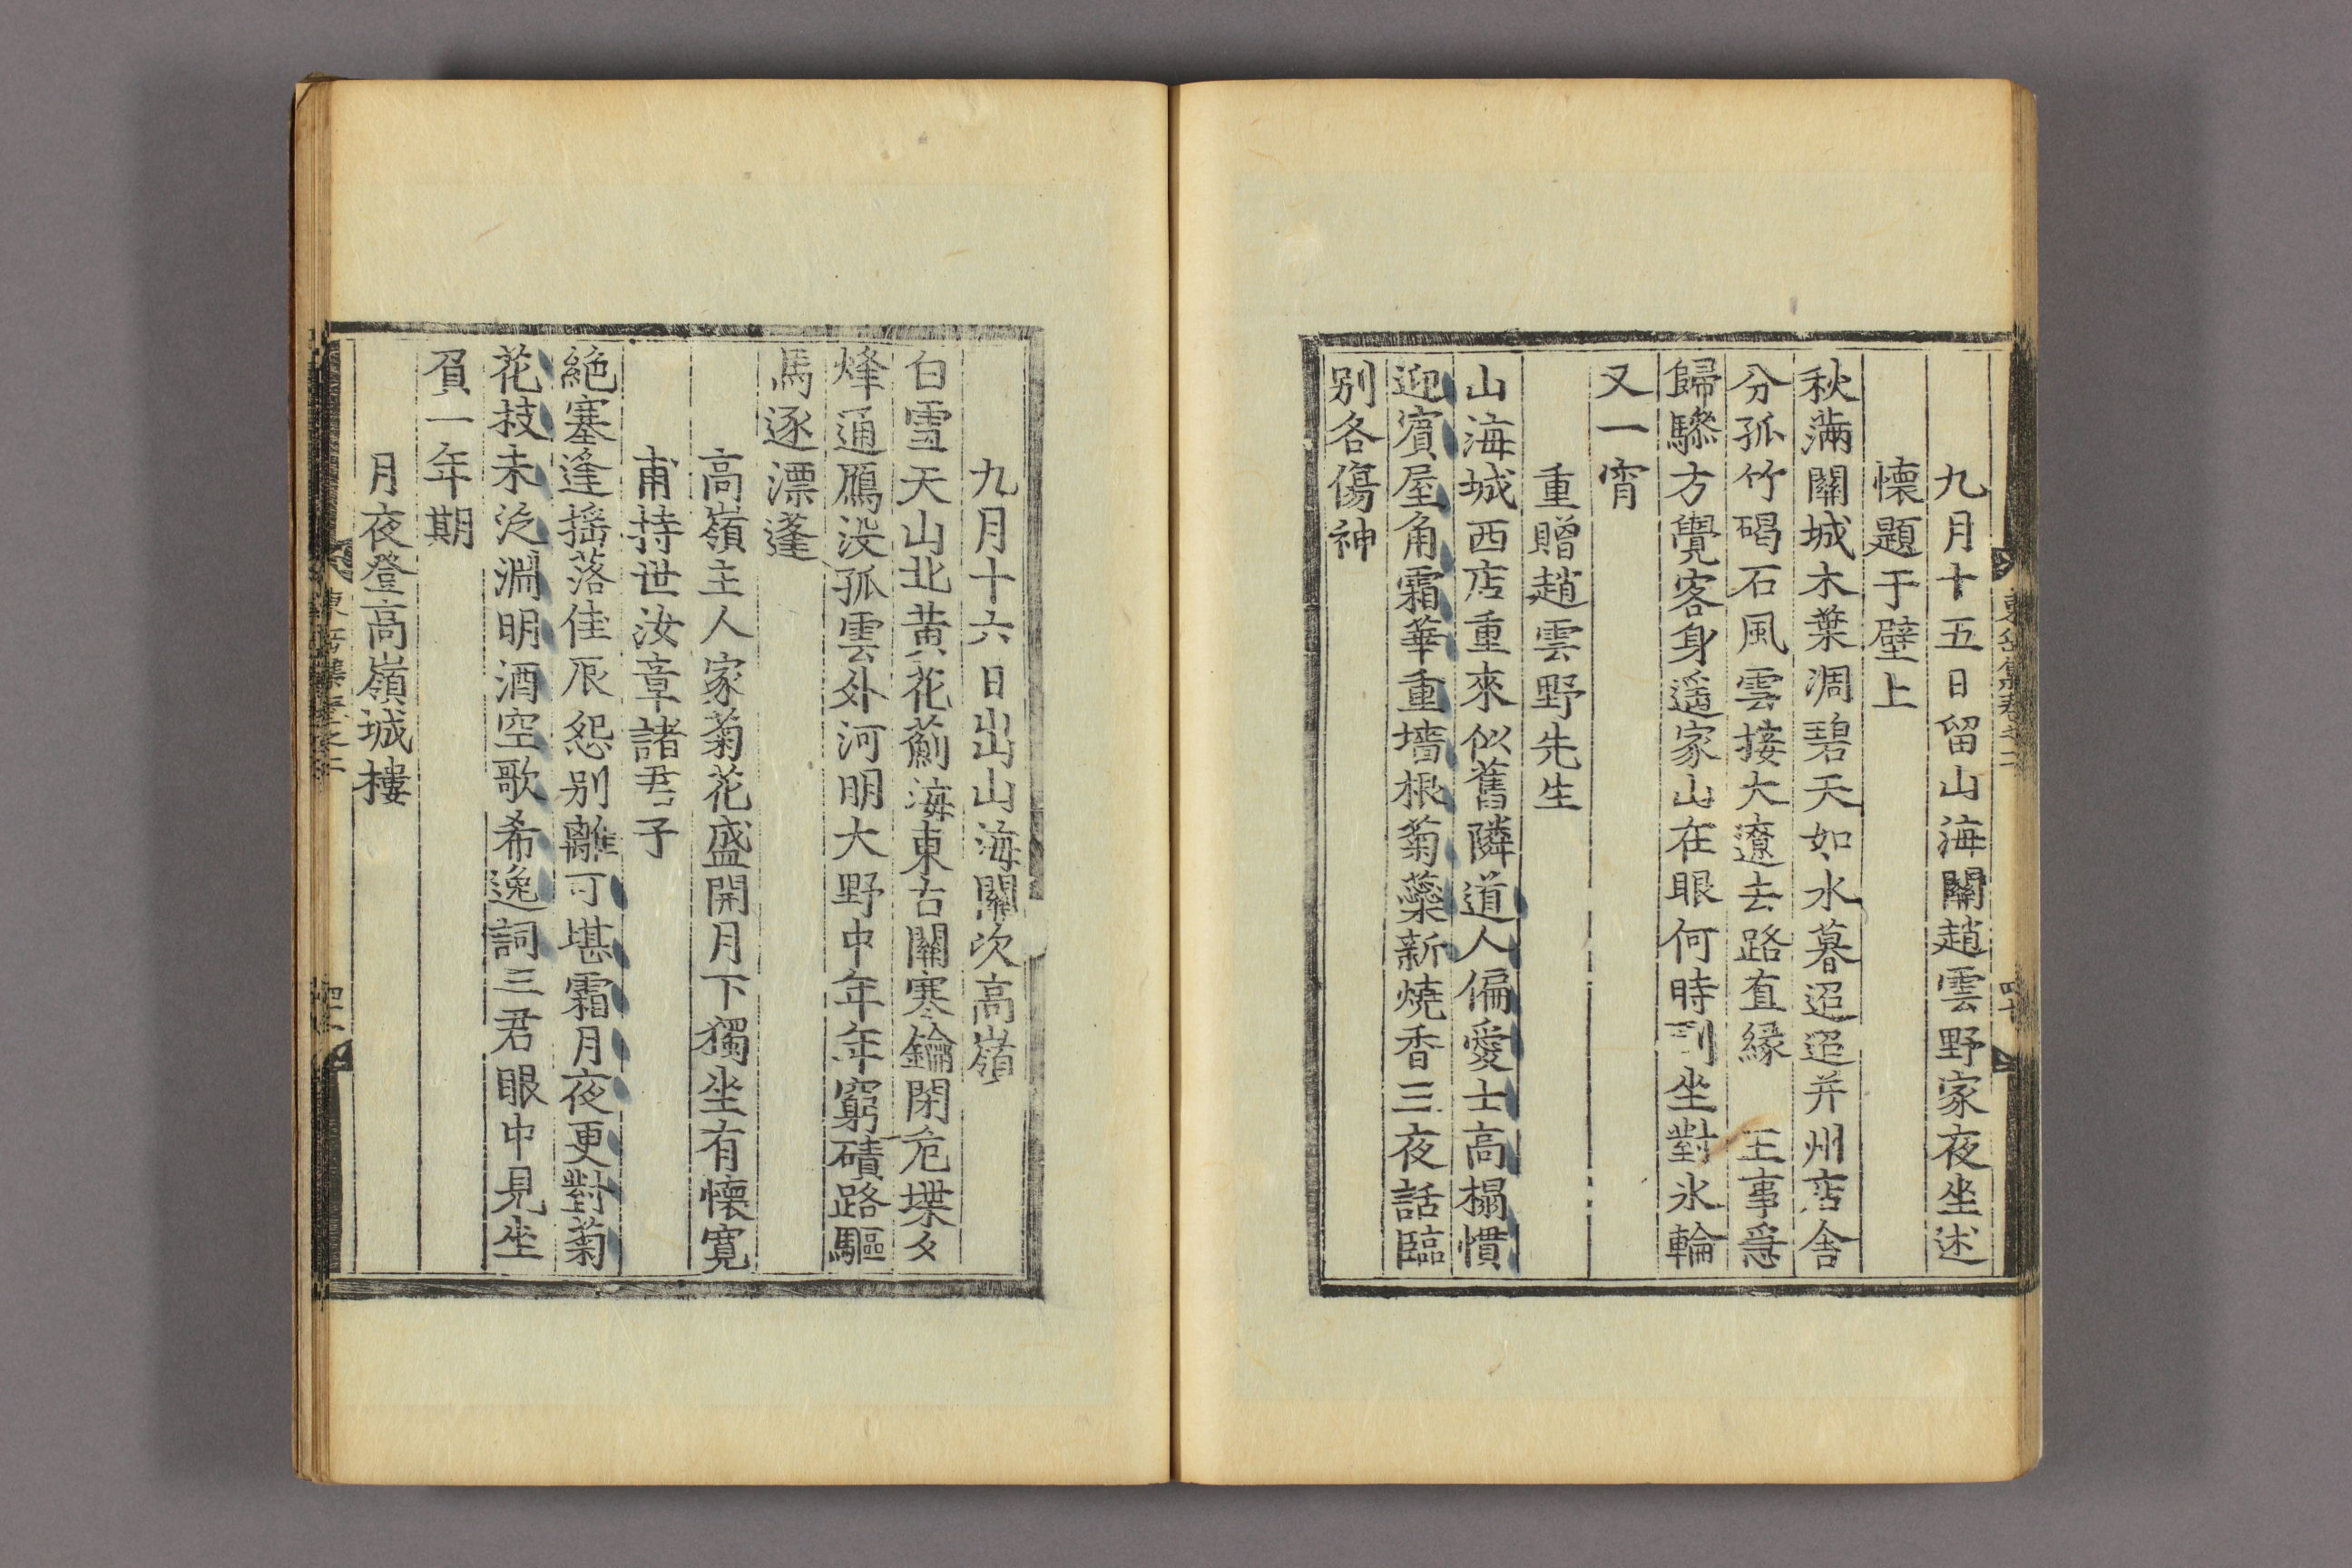 九月十五日留山海關趙雲野家夜坐述
懷題于壁上
秋滿關城木葉凋碧天如水暮迢迢并州店舍
分孤竹碣石風雲接大遼去路直緣王事急
歸驂方覺客身遥家山在眼何時到坐對氷輪
又一宵
重贈趙雲野先生
山海城西店重來似舊隣道人偏愛士高榻慣
迎賓屋角霜華重墻根菊蘂新燒香三夜話臨
别各傷神
九月十六日出山海關次高嶺
白雪天山北黄花薊海東古關寒鑰閉危堞夕
烽通鴈没孤雲外河明大野中年年窮磧路驅
馬逐漂蓬
高嶺主人家菊花盛開月下獨坐有懷寬
甫持世汝章諸君子
絶塞逢揺落佳辰怨别離可堪霜月夜更對菊
花枝未泛淵明酒空歌希逸詞三君眼中見坐
負一年期
月夜登高嶺城樓